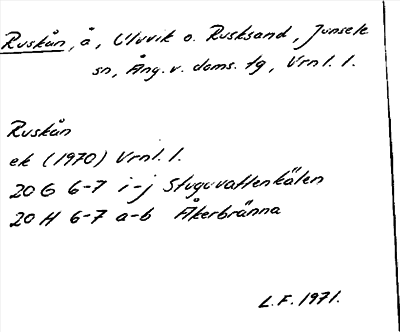 Ruskån, å, Uluvik o. Rusksand, Junsele
sn, Ång. v. doms. tg, Vrnl. l.
Ruskån
ek (1970) Vrnl. l.
20 G 6-7 i-j Stuguvattenkälen
20 H 6-7 a-b Åkerbränna
L.F. 1971.